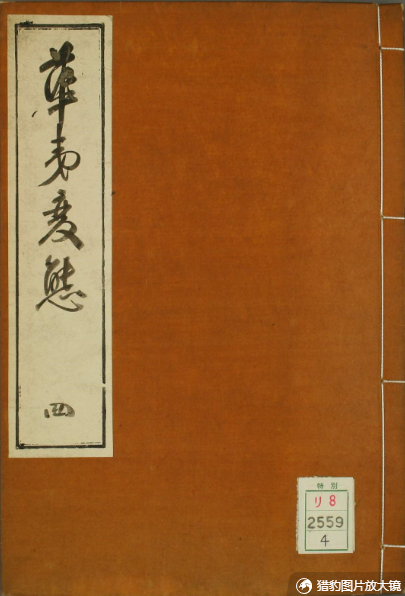 華夷変態
四
特別
リ8
2559
4
猎豹图片放大镜